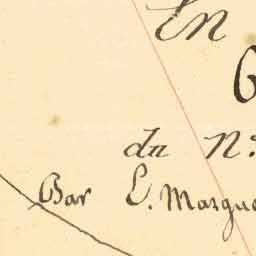 En
du N:
Par E. Masque